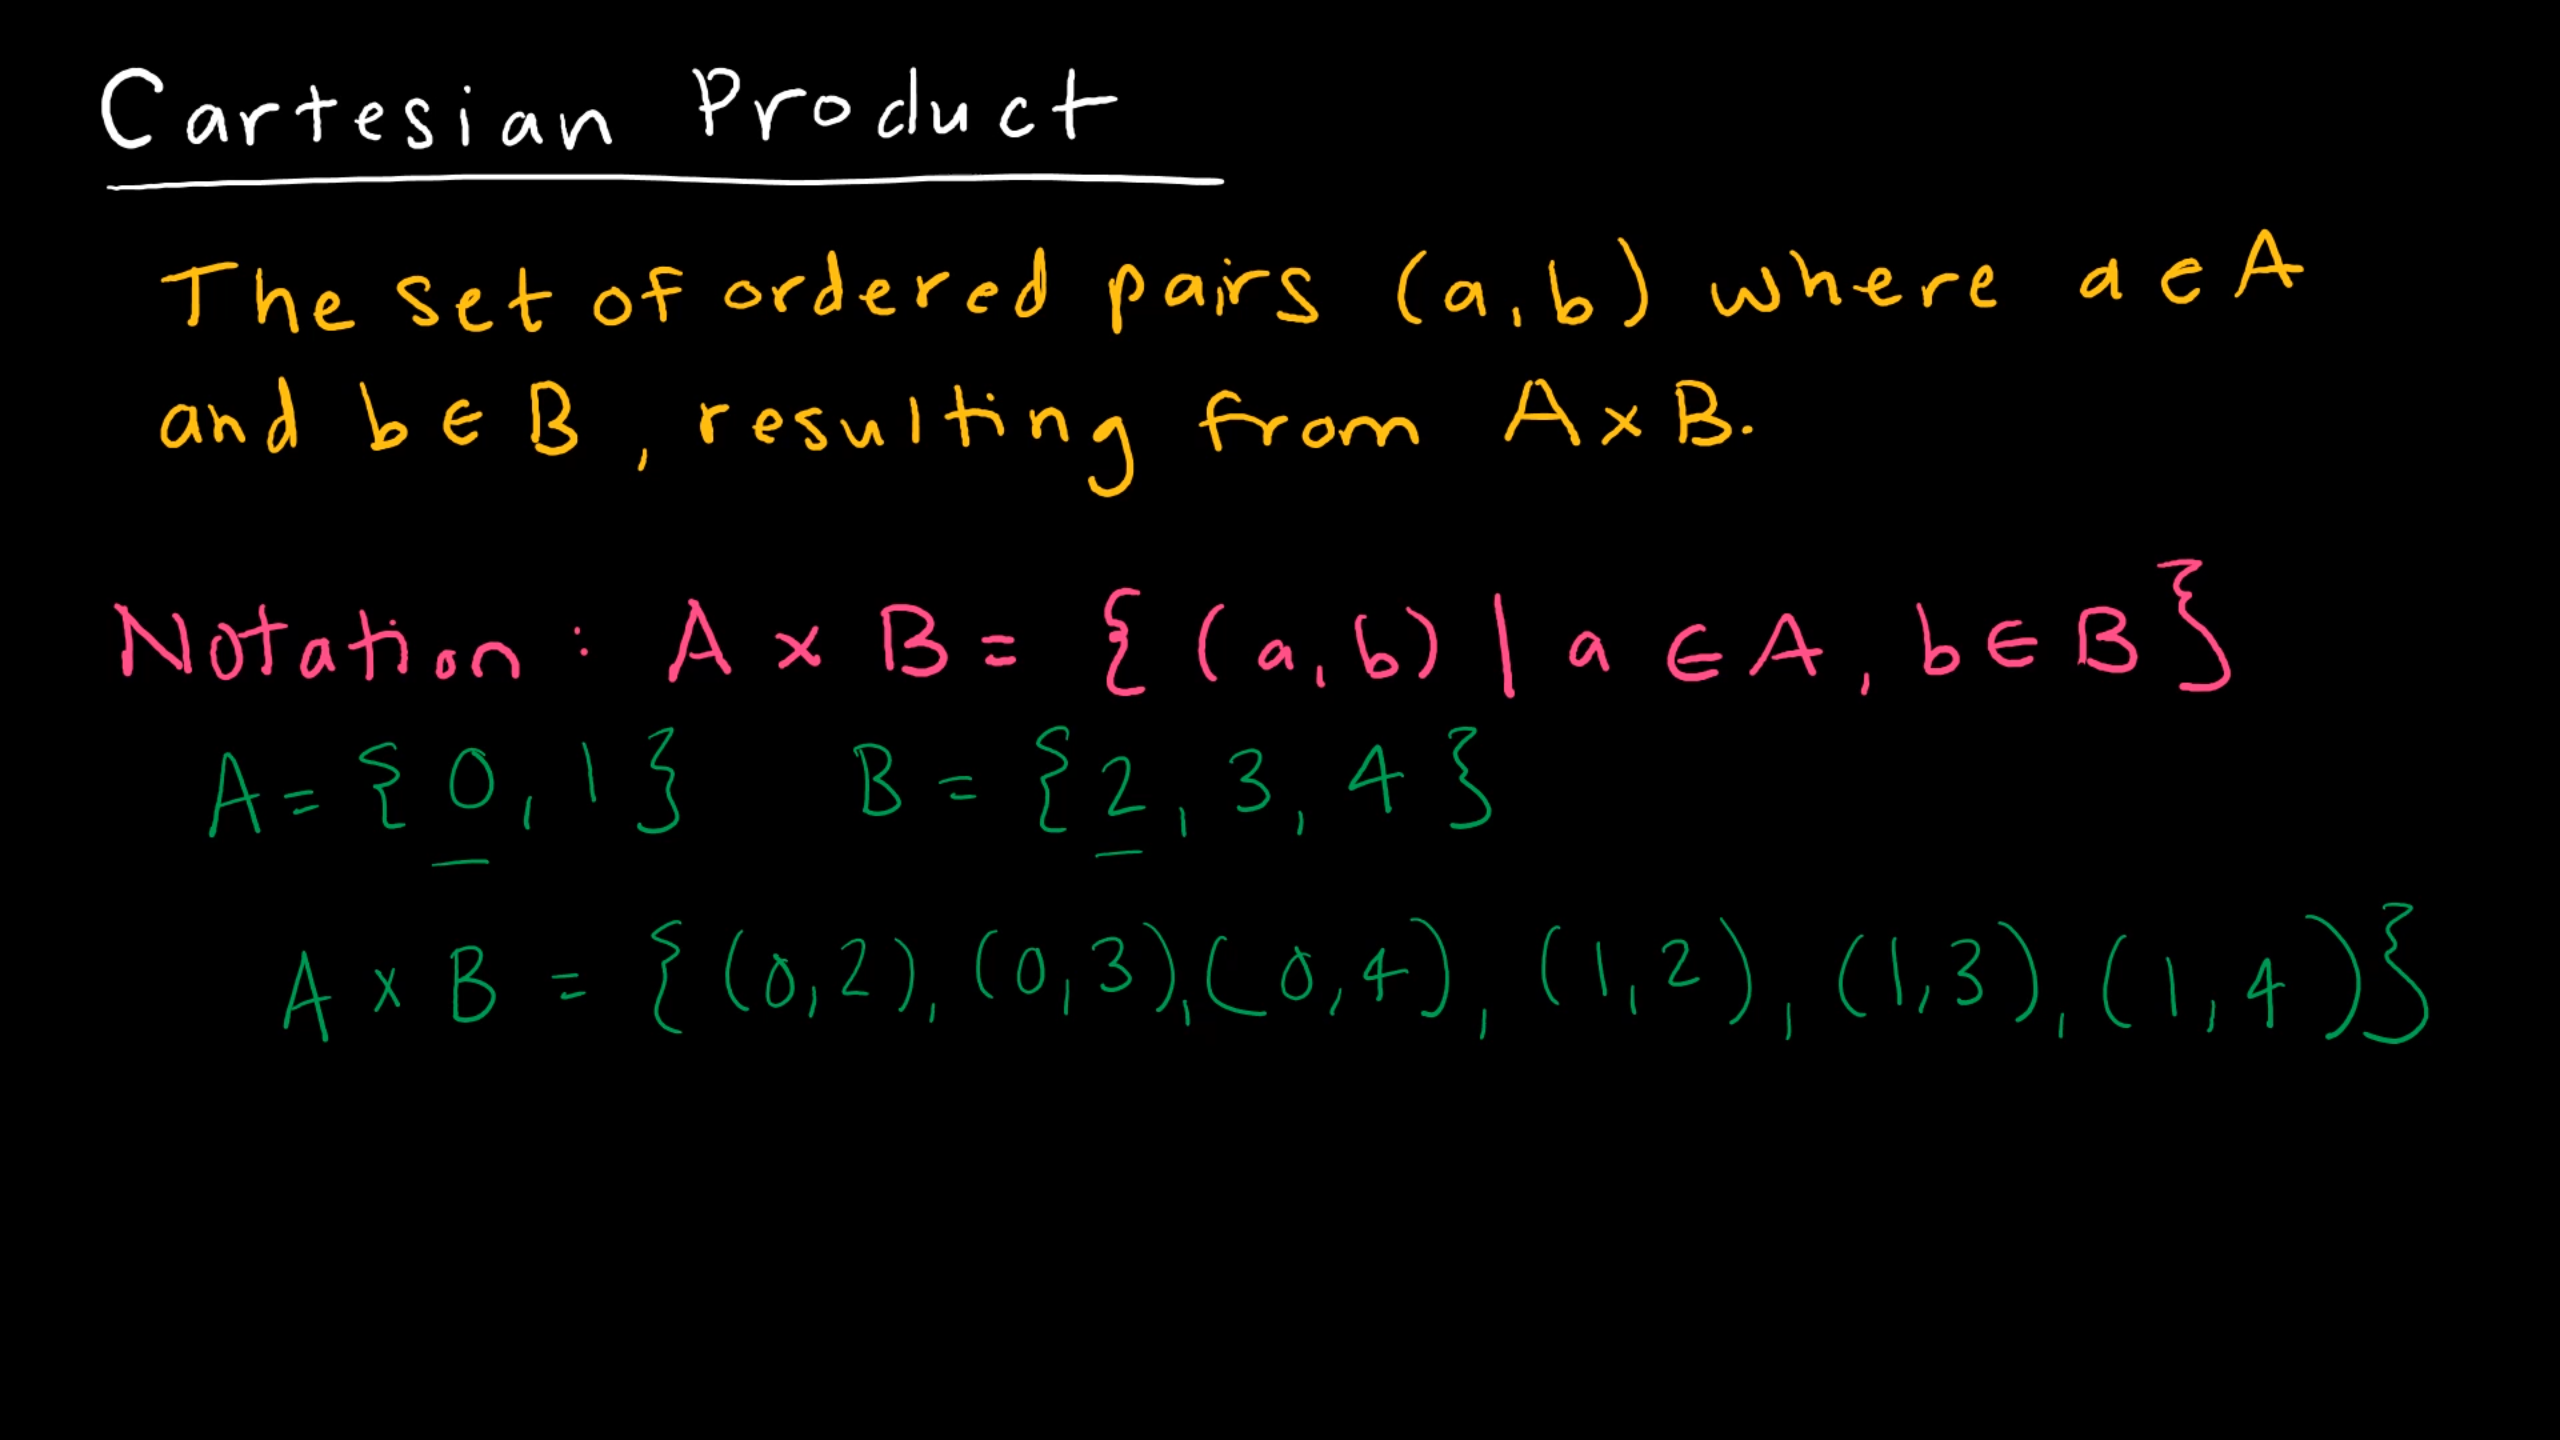 Cartesian Product
The set of ordered pairs (a,b) where a ∈ A
and b ∈ B, resulting from A × B.
Notation: A × B = {(a,b) | a ∈ A, b ∈ B}
A = {0, 1} B = {2, 3, 4}
A × B = {(0,2), (0,3), (0,4), (1,2), (1,3), (1,4)}